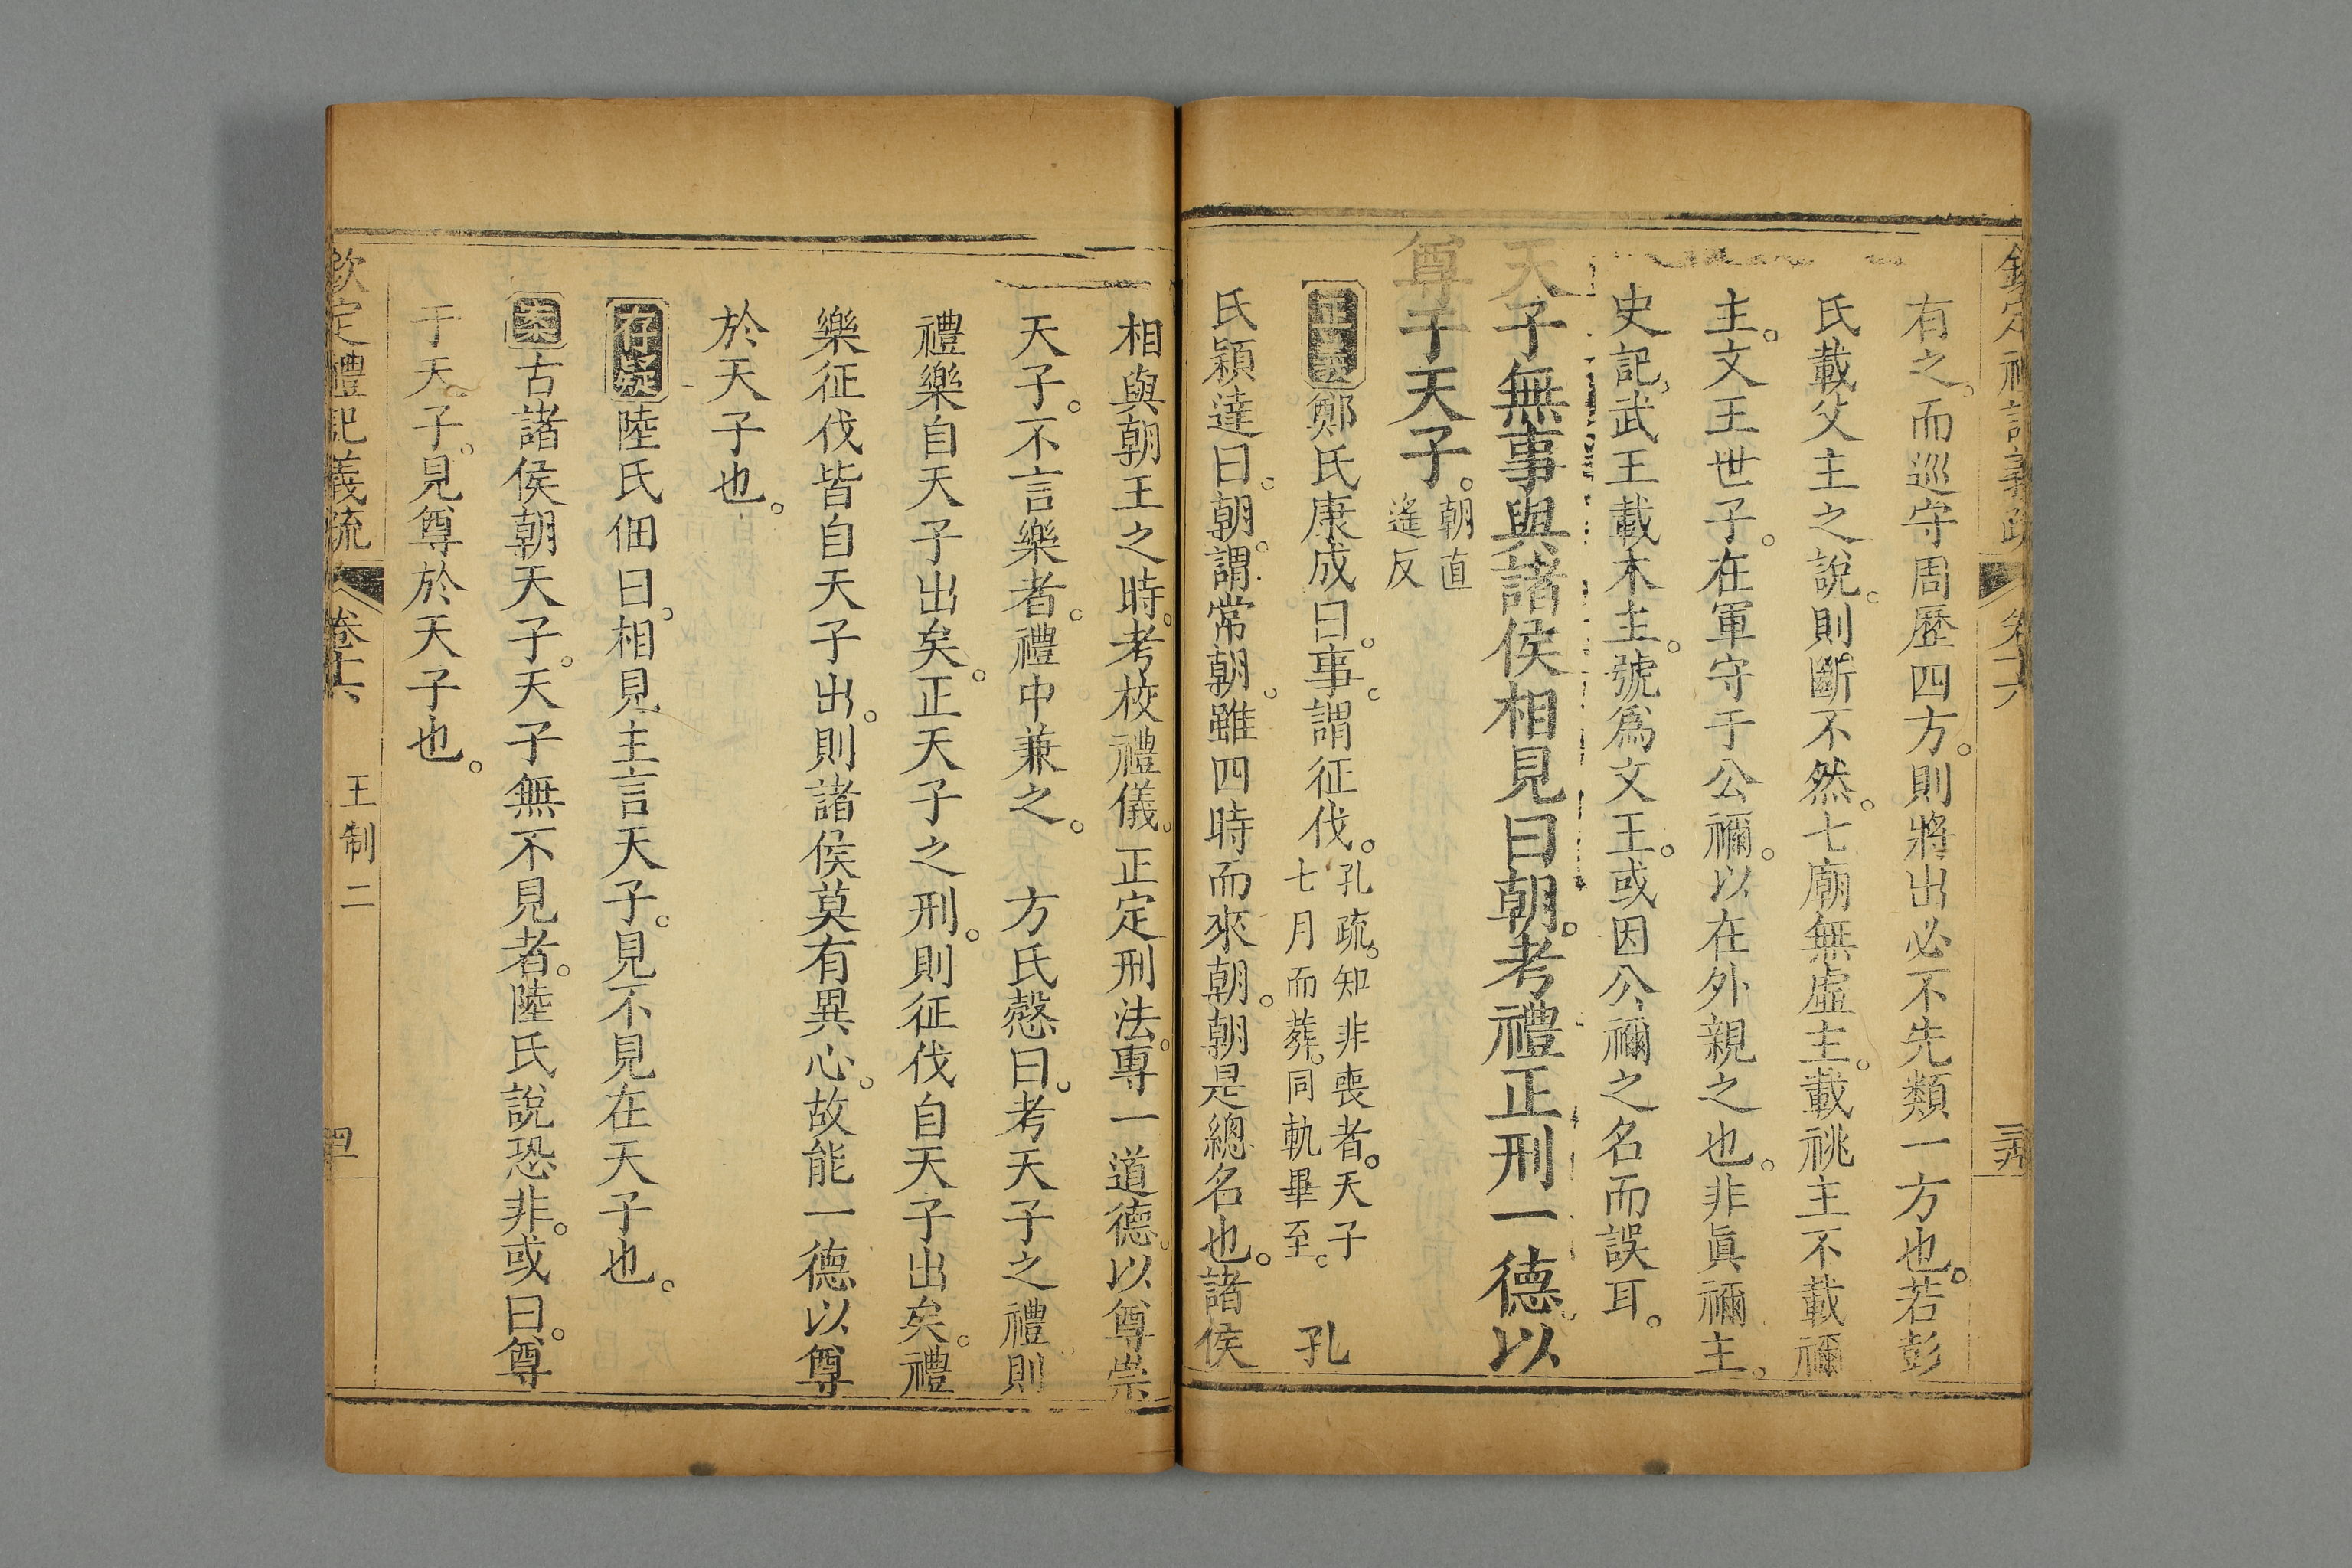 欽定禮記義疏 卷十六 三九
有之。而巡守周歷四方。則將出必不先類一方也。若彭
氏載父主之說。則斷不然。七廟無虛主。載祧主不載禰
主。文王世子。在軍守于公禰。以在外親之也。非眞禰主。
史記。武王載木主。號爲文王。或因公禰之名而誤耳。
天子無事與諸侯相見曰朝。考禮正刑一德。以
尊于天子。朝直
遙反
正義鄭氏康成曰。事。謂征伐。孔疏。知非喪者。天子
七月而葬。同軌畢至。 孔
氏穎達曰。朝。謂常朝。雖四時而來朝。朝是總名也。諸侯
相與朝王之時。考校禮儀。正定刑法。專一道德。以尊崇
天子。不言樂者。禮中兼之。 方氏慤曰。考天子之禮。則
禮樂自天子出矣。正天子之刑。則征伐自天子出矣。禮
樂征伐皆自天子出。則諸侯莫有異心。故能一德以尊
於天子也。
存疑陸氏佃曰。相見主言天子。見不見在天子也。
案古諸侯朝天子。天子無不見者。陸氏說恐非。或曰。尊
于天子。見尊於天子也。
欽定禮記義疏 卷十六 王制二 四一